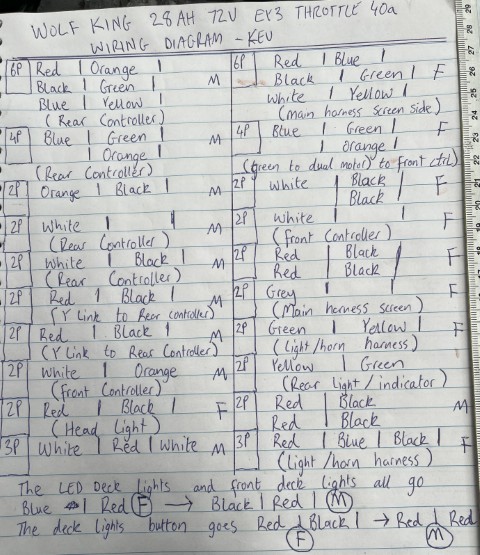 WOLF KING 28AH 72V EY3 THROTTLE 40a
WIRING DIAGRAM - KEV
6P Red | Orange |
Black | Green | M
Blue | Yellow |
(Rear Controller)
4P Blue | Green | M
| Orange |
(Rear Controller)
2P Orange | Black | M
2P White | | M
(Rear Controller)
2P White | Black | M
(Rear Controller)
2P Red | Black | M
(Y Link to Rear controller)
2P Red | Black | M
(Y Link to Rear Controller)
2P White | Orange M
(front Controller)
2P Red | Black | F
(Head Light)
3P White | Red | White M
6P Red | Blue |
Black | Green | F
White | Yellow |
(main harness screen side)
4P Blue | Green | F
| Orange |
(Green to dual motor) to front ctrl)
2P White | Black | F
| Black |
2P White | | F
(front Controller)
2P Red | Black | F
Red | Black |
2P Grey | | F
(Main harness screen)
2P Green | Yellow | F
(Light/horn harness)
2P Yellow | Green
(Rear Light / indicator)
2P Red | Black M
Red | Black
3P Red | Blue | Black | F
(Light/horn harness)
The LED Deck Lights and front deck lights all go
Blue | Red (F) → Black | Red | (M)
The deck lights button goes Red | Black | → Red | Red
F M
29
27
26
25
24
23
22
21
20
19
18